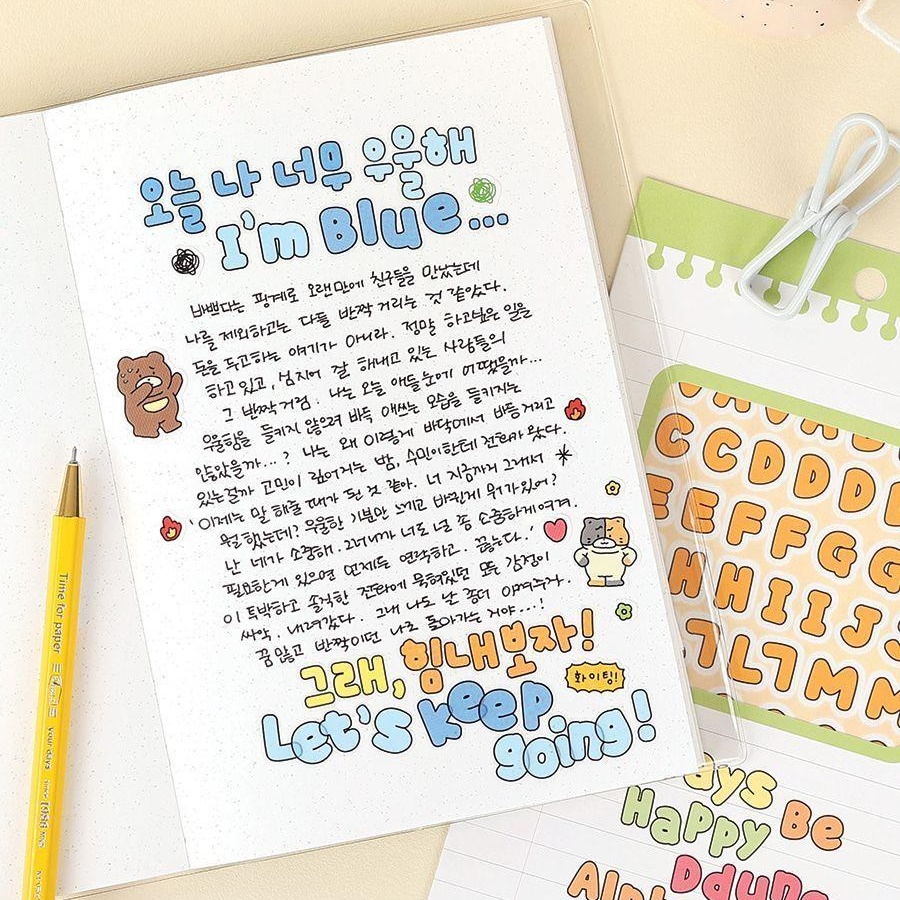 오늘 나 너무 우울해
I'm Blue...
바쁘다는 핑계로 오랜만에 친구들을 만났는데
나를 제외하고는 다들 반짝 거리는 것 같았다.
돈을 두고하는 얘기가 아니라. 정말 하고싶은 일을
하고 있고, 심지어 잘 해내고 있는 사람들의
그 반짝거림. 나는 오늘 애들 눈에 어땠을까...
우울함을 들키지 않으려 바득 애쓰는 모습을 들키지는
않았을까...? 나는 왜 이렇게 바닥에서 바등거리고
있는걸까 고민이 깊어지는 밤, 수민이한테 전화가 왔다.
'이제는 말 해줄 때가 된 것 같아. 너 지금까지 그래서
뭘 했는데? 우울한 기분만 느끼고 바뀐게 뭐가있어?
난 네가 소중해. 그러니까 너도 널 좀 소중하게 여겨.
필요한게 있으면 언제든 연락하고. 끊는다.'
이 투박하고 솔직한 전화에 묵혀있던 모든 감정이
싸악, 내려갔다. 그래 나도 날 좀더 아껴주자.
꿈 많고 반짝이던 나로 돌아가는거야...!
그래, 힘내보자!
화이팅!
Let's keep
going!
Time for paper
your days
C C D D D
E E F F G G
H H I I J S
7 L 7 M M
ays
Happy Be
Ddung